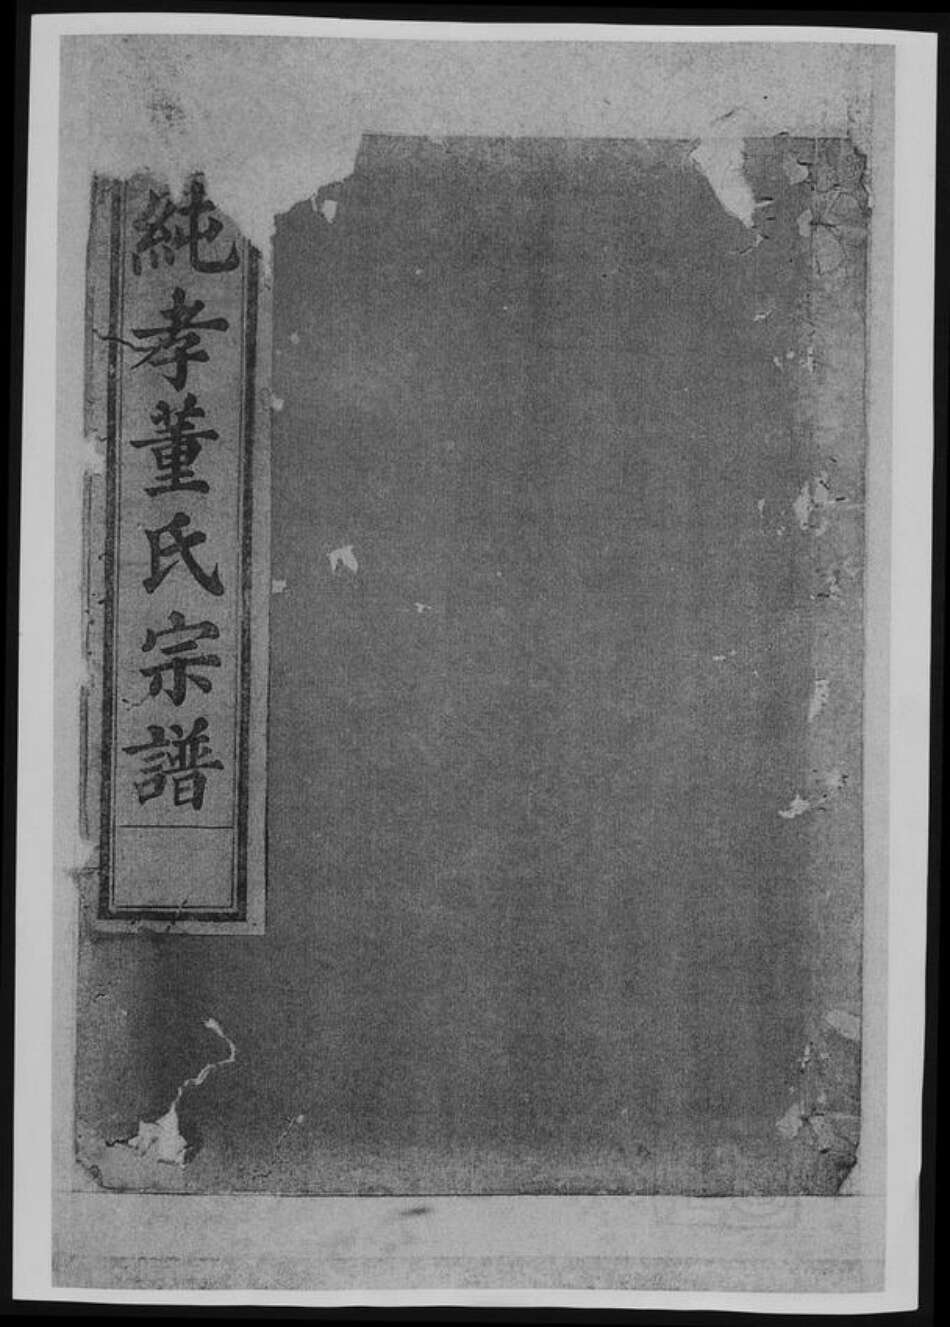 純孝董氏宗譜